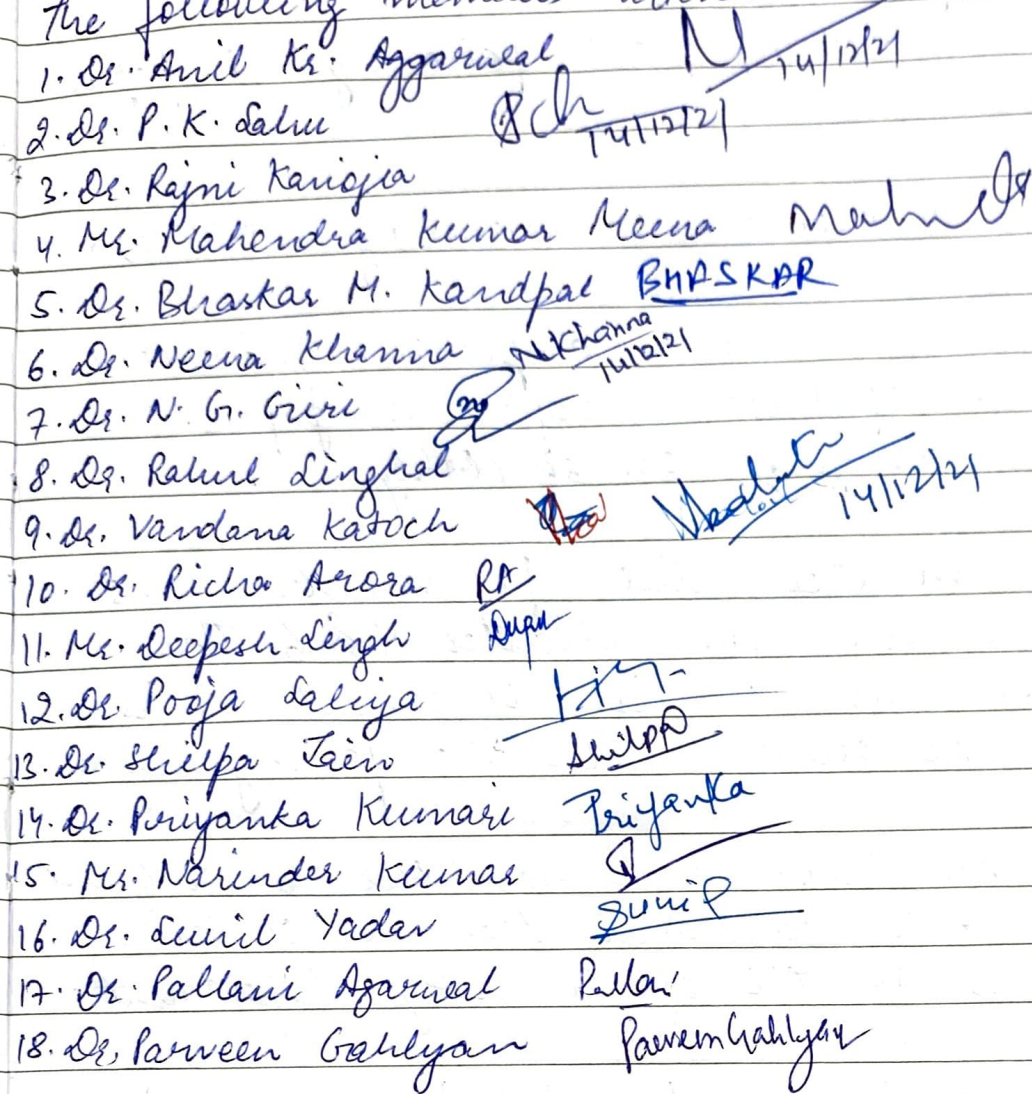 The following members
1. Dr. Anil Kr. Aggarwal 14/12/21
2. Dr. P. K. Sahu 14/12/21
3. Dr. Rajni Kanojia
4. Mr. Mahendra Kumar Meena
5. Dr. Bhaskar M. Kandpal BHASKAR
6. Dr. Neena Khanna NKhanna 14/12/21
7. Dr. N. G. Giri
8. Dr. Rahul Singhal
9. Dr. Vandana Katoch 14/12/21
10. Dr. Richa Arora RA
11. Mr. Deepesh Singh
12. Dr. Pooja Saluja
13. Dr. Shilpa Jain Shilpa
14. Dr. Priyanka Kumari Priyanka
15. Mr. Narinder Kumar
16. Dr. Sunil Yadav Sunil
17. Dr. Pallavi Agarwal Pallavi
18. Dr, Parveen Gahlyan Parveen Gahlyan